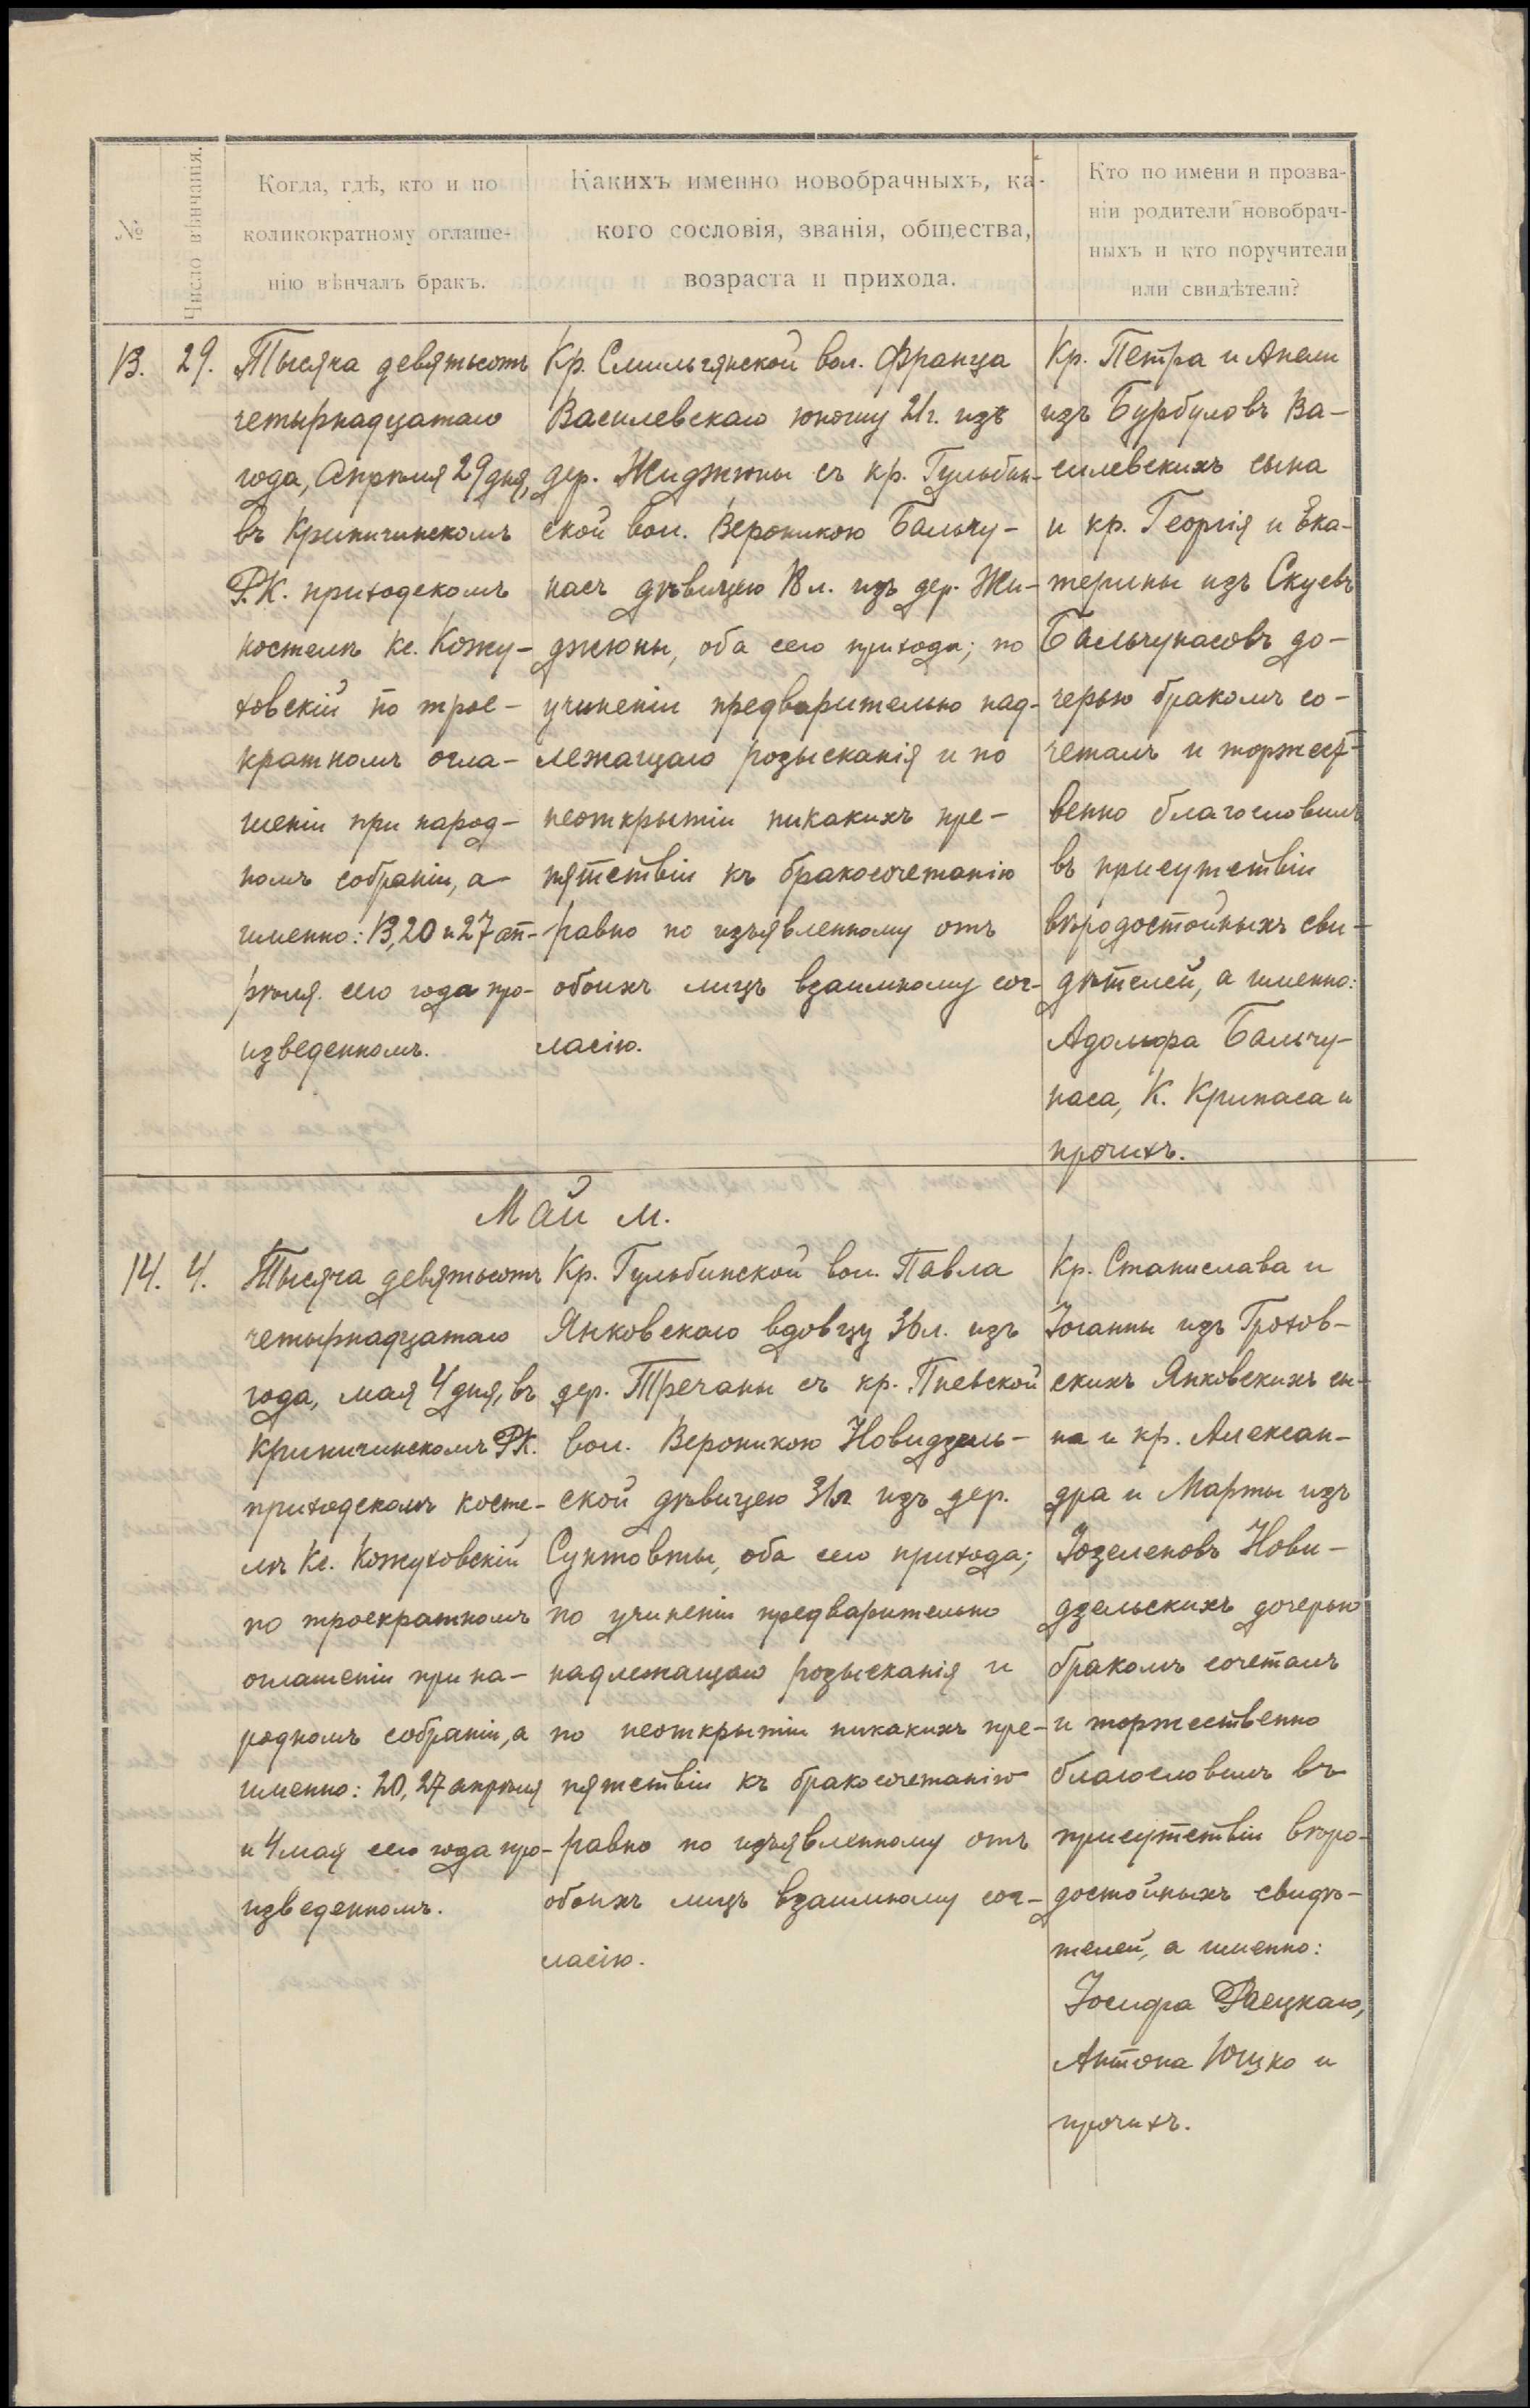 №
Число вѣнчанія.
Когда, гдѣ, кто и по
коликократному оглаше-
нію вѣнчалъ бракъ.
Какихъ именно новобрачныхъ, ка-
кого сословія, званія, общества,
возраста и прихода.
Кто по имени и прозва-
ніи родители новобрач-
ныхъ и кто поручители
или свидѣтели?
13.
29.
Тысяча девятьсотъ
четырнадцатаго
года, апрѣля 29 дня,
въ Криничинскомъ
Р.К. приходскомъ
костелѣ Кс. Кожу-
ховскій по трое-
кратномъ огла-
шеніи при народ-
номъ собраніи, а
именно: 13, 20 и 27 ап-
рѣля сего года про-
изведенномъ.
Кр. Смильгянской вол. Франца
Василевскаго юношу 21 г. изъ
дер. Жиджюны съ кр. Гульбин-
ской вол. Вероникою Бальчу-
насъ дѣвицею 18 л. изъ дер. Жи-
джюны, оба сего прихода; по
учиненіи предварительно над-
лежащаго розысканія и по
неоткрытіи никакихъ пре-
пятствій къ бракосочетанію
равно по изъявленному отъ
обоихъ лицъ взаимному сог-
ласію.
Кр. Петра и Анели
изъ Бурбуловъ Ва-
силевскихъ сына
и кр. Георгія и Ека-
терины изъ Скуевъ
Бальчунасовъ до-
черью бракомъ со-
четалъ и торжест-
венно благословилъ
въ присутствіи
вѣродостойныхъ сви-
дѣтелей, а именно:
Адольфа Бальчу-
наса, К. Кринаса и
прочихъ.
Май м.
14.
4.
Тысяча девятьсотъ
четырнадцатаго
года, мая 4 дня, въ
Криничинскомъ Р.К.
приходскомъ косте-
лѣ Кс. Кожуховскій
по троекратномъ
оглашеніи при на-
родномъ собраніи, а
именно: 20, 27 апрѣля
и 4 мая сего года про-
изведенномъ.
Кр. Гульбинской вол. Павла
Янковскаго вдовцу 36 л. изъ
дер. Тречаны съ кр. Пневской
вол. Вероникою Новидзель-
ской дѣвицею 31 л. изъ дер.
Сунтовты, оба сего прихода;
по учиненіи предварительно
надлежащаго розысканія и
по неоткрытіи никакихъ пре-
пятствій къ бракосочетанію
равно по изъявленному отъ
обоихъ лицъ взаимному сог-
ласію.
Кр. Станислава и
Іоганны изъ Гротов-
скихъ Янковскихъ сы-
на и кр. Алексан-
дра и Марты изъ
Іозеленовъ Нови-
дзельскихъ дочерью
бракомъ сочеталъ
и торжественно
благословилъ въ
присутствіи вѣро-
достойныхъ свидѣ-
телей, а именно:
Іосифа Раецкаго,
Антона Юцко и
прочихъ.